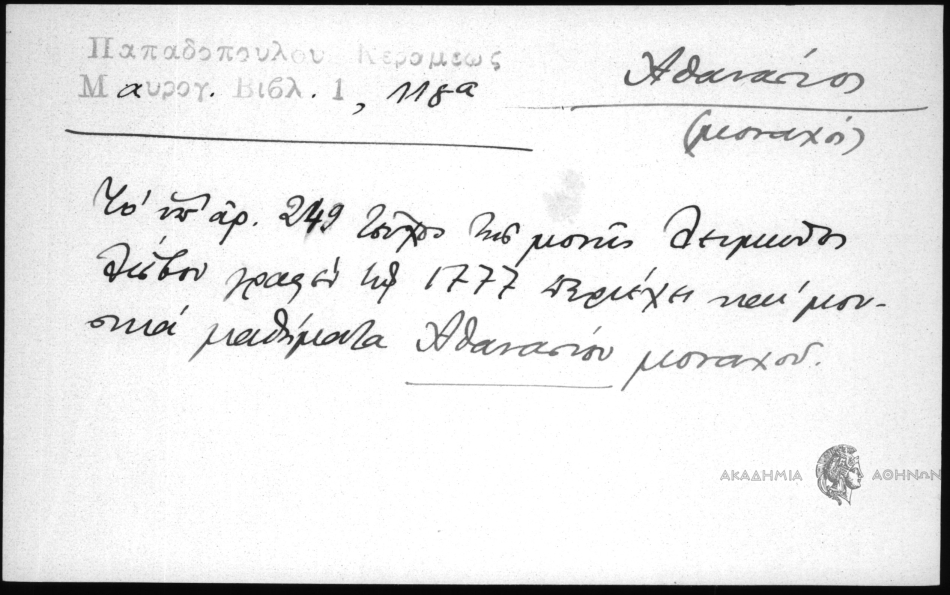 Παπαδοπούλου Κεραμεως
Μαυρογ. Βιβλ. 1, 118α
Ἀθανάσιος
(μοναχός)
Τὸ ὑπ' ἀρ. 249 τεῦχος τῆς μονῆς Λειμῶνος
Λέσβου γραφὲν τῷ 1777 περιέχει καὶ μου-
σικὰ μαθήματα Ἀθανασίου μοναχοῦ.
ΑΚΑΔΗΜΙΑ ΑΘΗΝΩΝ